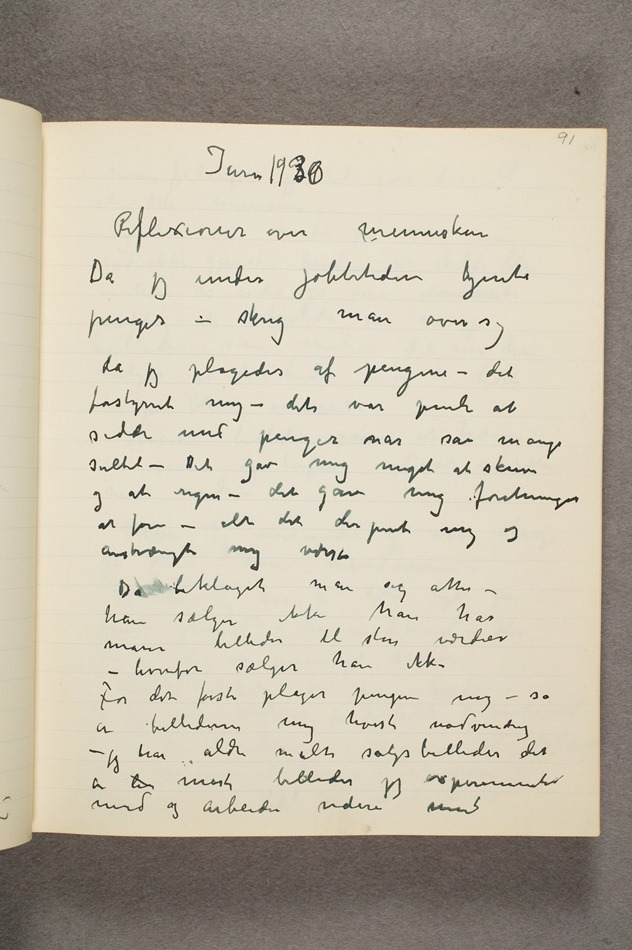 91
Juni 1930
Reflexioner over mennesken
Da jeg under jobbetiden tjente
penger – skreg man over sig
da jeg plagedes af pengene – det
forstyrret mig – det var pinli at
sidde med penger når så mange
sultet – Det gav mig meget at skrive
og at regne – det gav mig forretninger
at føre – alt det der pint mig og
anstrængte mig værst
Da beklaget man sig atter –
han sælger ikke han har
mange billeder til store værdier
– hvorfor sælger han ikke
For det første plager pengene mig – så
er billederne mig høist nødvendig
– jeg har aldri malt salgsbilleder det
er mest billeder jeg experimenter
med og arbeider videre med